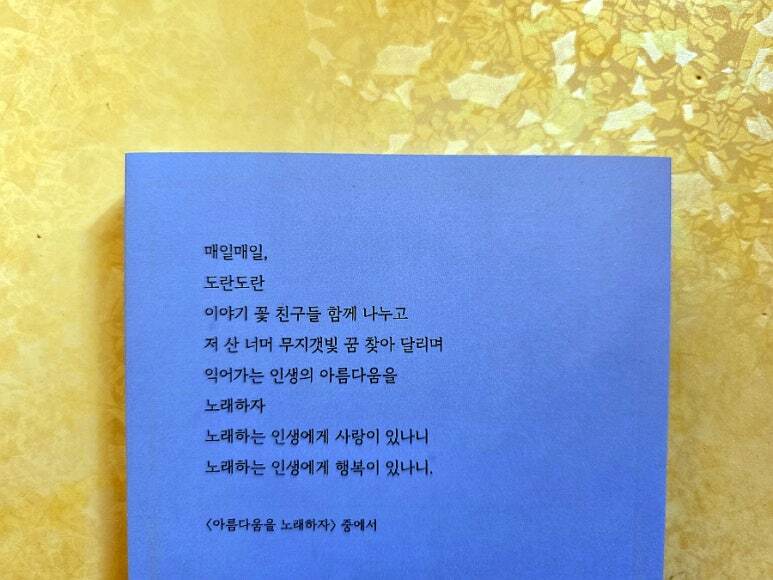 매일매일,
도란도란
이야기 꽃 친구들 함께 나누고
저 산 너머 무지갯빛 꿈 찾아 달리며
익어가는 인생의 아름다움을
노래하자
노래하는 인생에게 사랑이 있나니
노래하는 인생에게 행복이 있나니.
〈아름다움을 노래하자〉 중에서